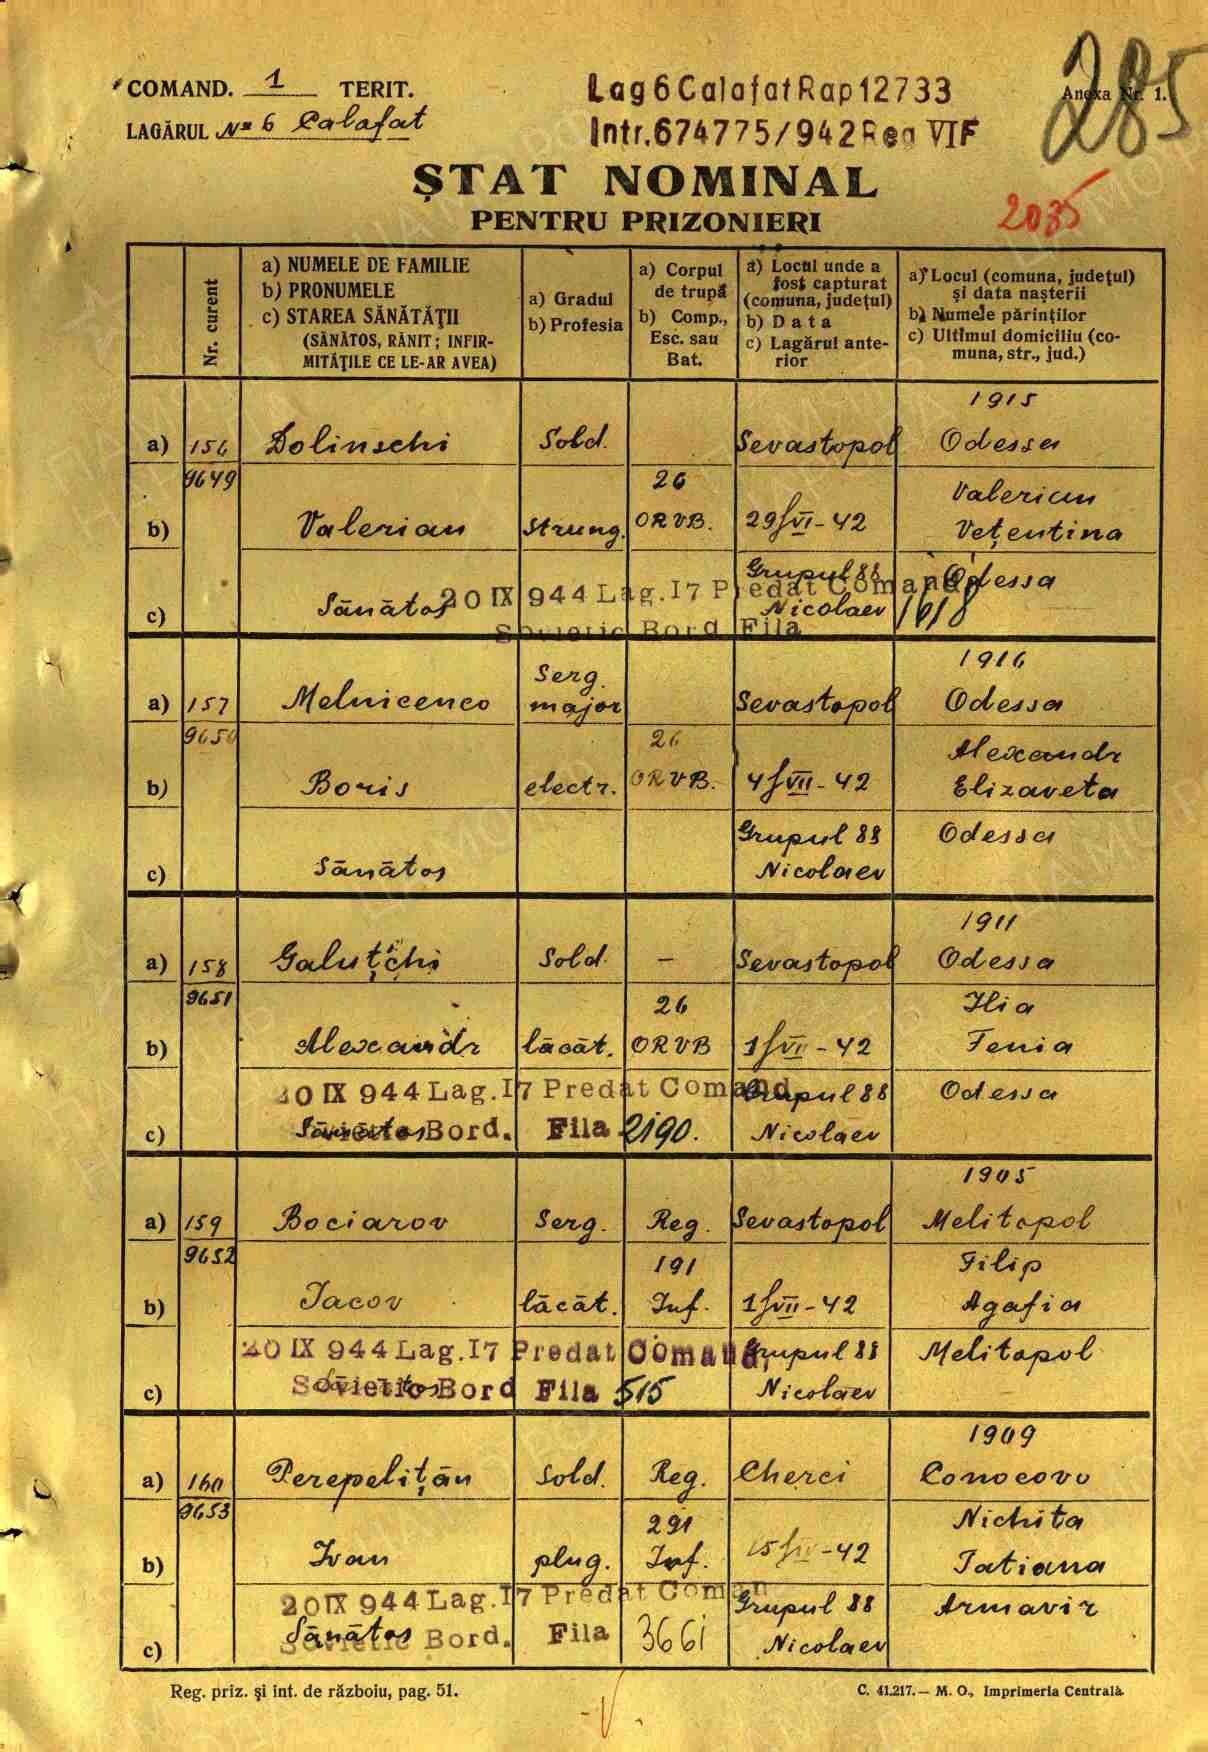 COMAND. 1 TERIT.
LAGĂRUL No 6 Calafat
Lag 6 Calafat Rap 12733
Intr. 674775/942 Reg VIF
Anexa Nr. 1.
285
ȘTAT NOMINAL
PENTRU PRIZONIERI
2035
Nr. curent
a) NUMELE DE FAMILIE
b) PRONUMELE
c) STAREA SĂNĂTĂȚII
(SĂNĂTOS, RĂNIT; INFIR-
MITĂȚILE CE LE-AR AVEA)
a) Gradul
b) Profesia
a) Corpul
de trupă
b) Comp.,
Esc. sau
Bat.
a) Locul unde a
fost capturat
(comuna, județul)
b) Data
c) Lagărul ante-
rior
a) Locul (comuna, județul)
și data nașterii
b) Numele părinților
c) Ultimul domiciliu (co-
muna, str., jud.)
1915
a) 156 Dolinschi Sold. Sevastopol Odessa
9649 26 Valerian
b) Valerian Strung. ORVB. 29/VI-42 Vețentina
Grupul 88 Odessa
c) Sănătos Nicolaev
20 IX 944 Lag. I7 Predat Comand.
Sovietic Bord Fila 1618
Serg. 1916
a) 157 Melnicenco major Sevastopol Odessa
9650 26 Alexandr
b) Boris electr. ORVB. 4/VII-42 Elizaveta
Grupul 88 Odessa
c) Sănătos Nicolaev
1911
a) 158 Galuțchi Sold. – Sevastopol Odessa
9651 26 Ilia
b) Alexandr lăcăt. ORVB 1/VII-42 Fenia
Grupul 88 Odessa
c) Sănătos Nicolaev
20 IX 944 Lag. I7 Predat Comand.
Sovietic Bord. Fila 2190.
1905
a) 159 Bociarov Serg. Reg. Sevastopol Melitopol
9652 191 Filip
b) Iacov lăcăt. Inf. 1/VII-42 Agafia
Grupul 88 Melitopol
c) Sănătos Nicolaev
20 IX 944 Lag. I7 Predat Comand,
Sovietic Bord Fila 515
1909
a) 160 Perepelițăn Sold. Reg. Cherci Conocovo
9653 291 Nichita
b) Ivan plug. Inf. -42 Tatiana
Grupul 88 Armavir
c) Sănătos Nicolaev
20 IX 944 Lag. I7 Predat Coman
Sovietic Bord. Fila 3661
Reg. priz. și int. de războiu, pag. 51.
C. 41.217.– M. O., Imprimeria Centrală.